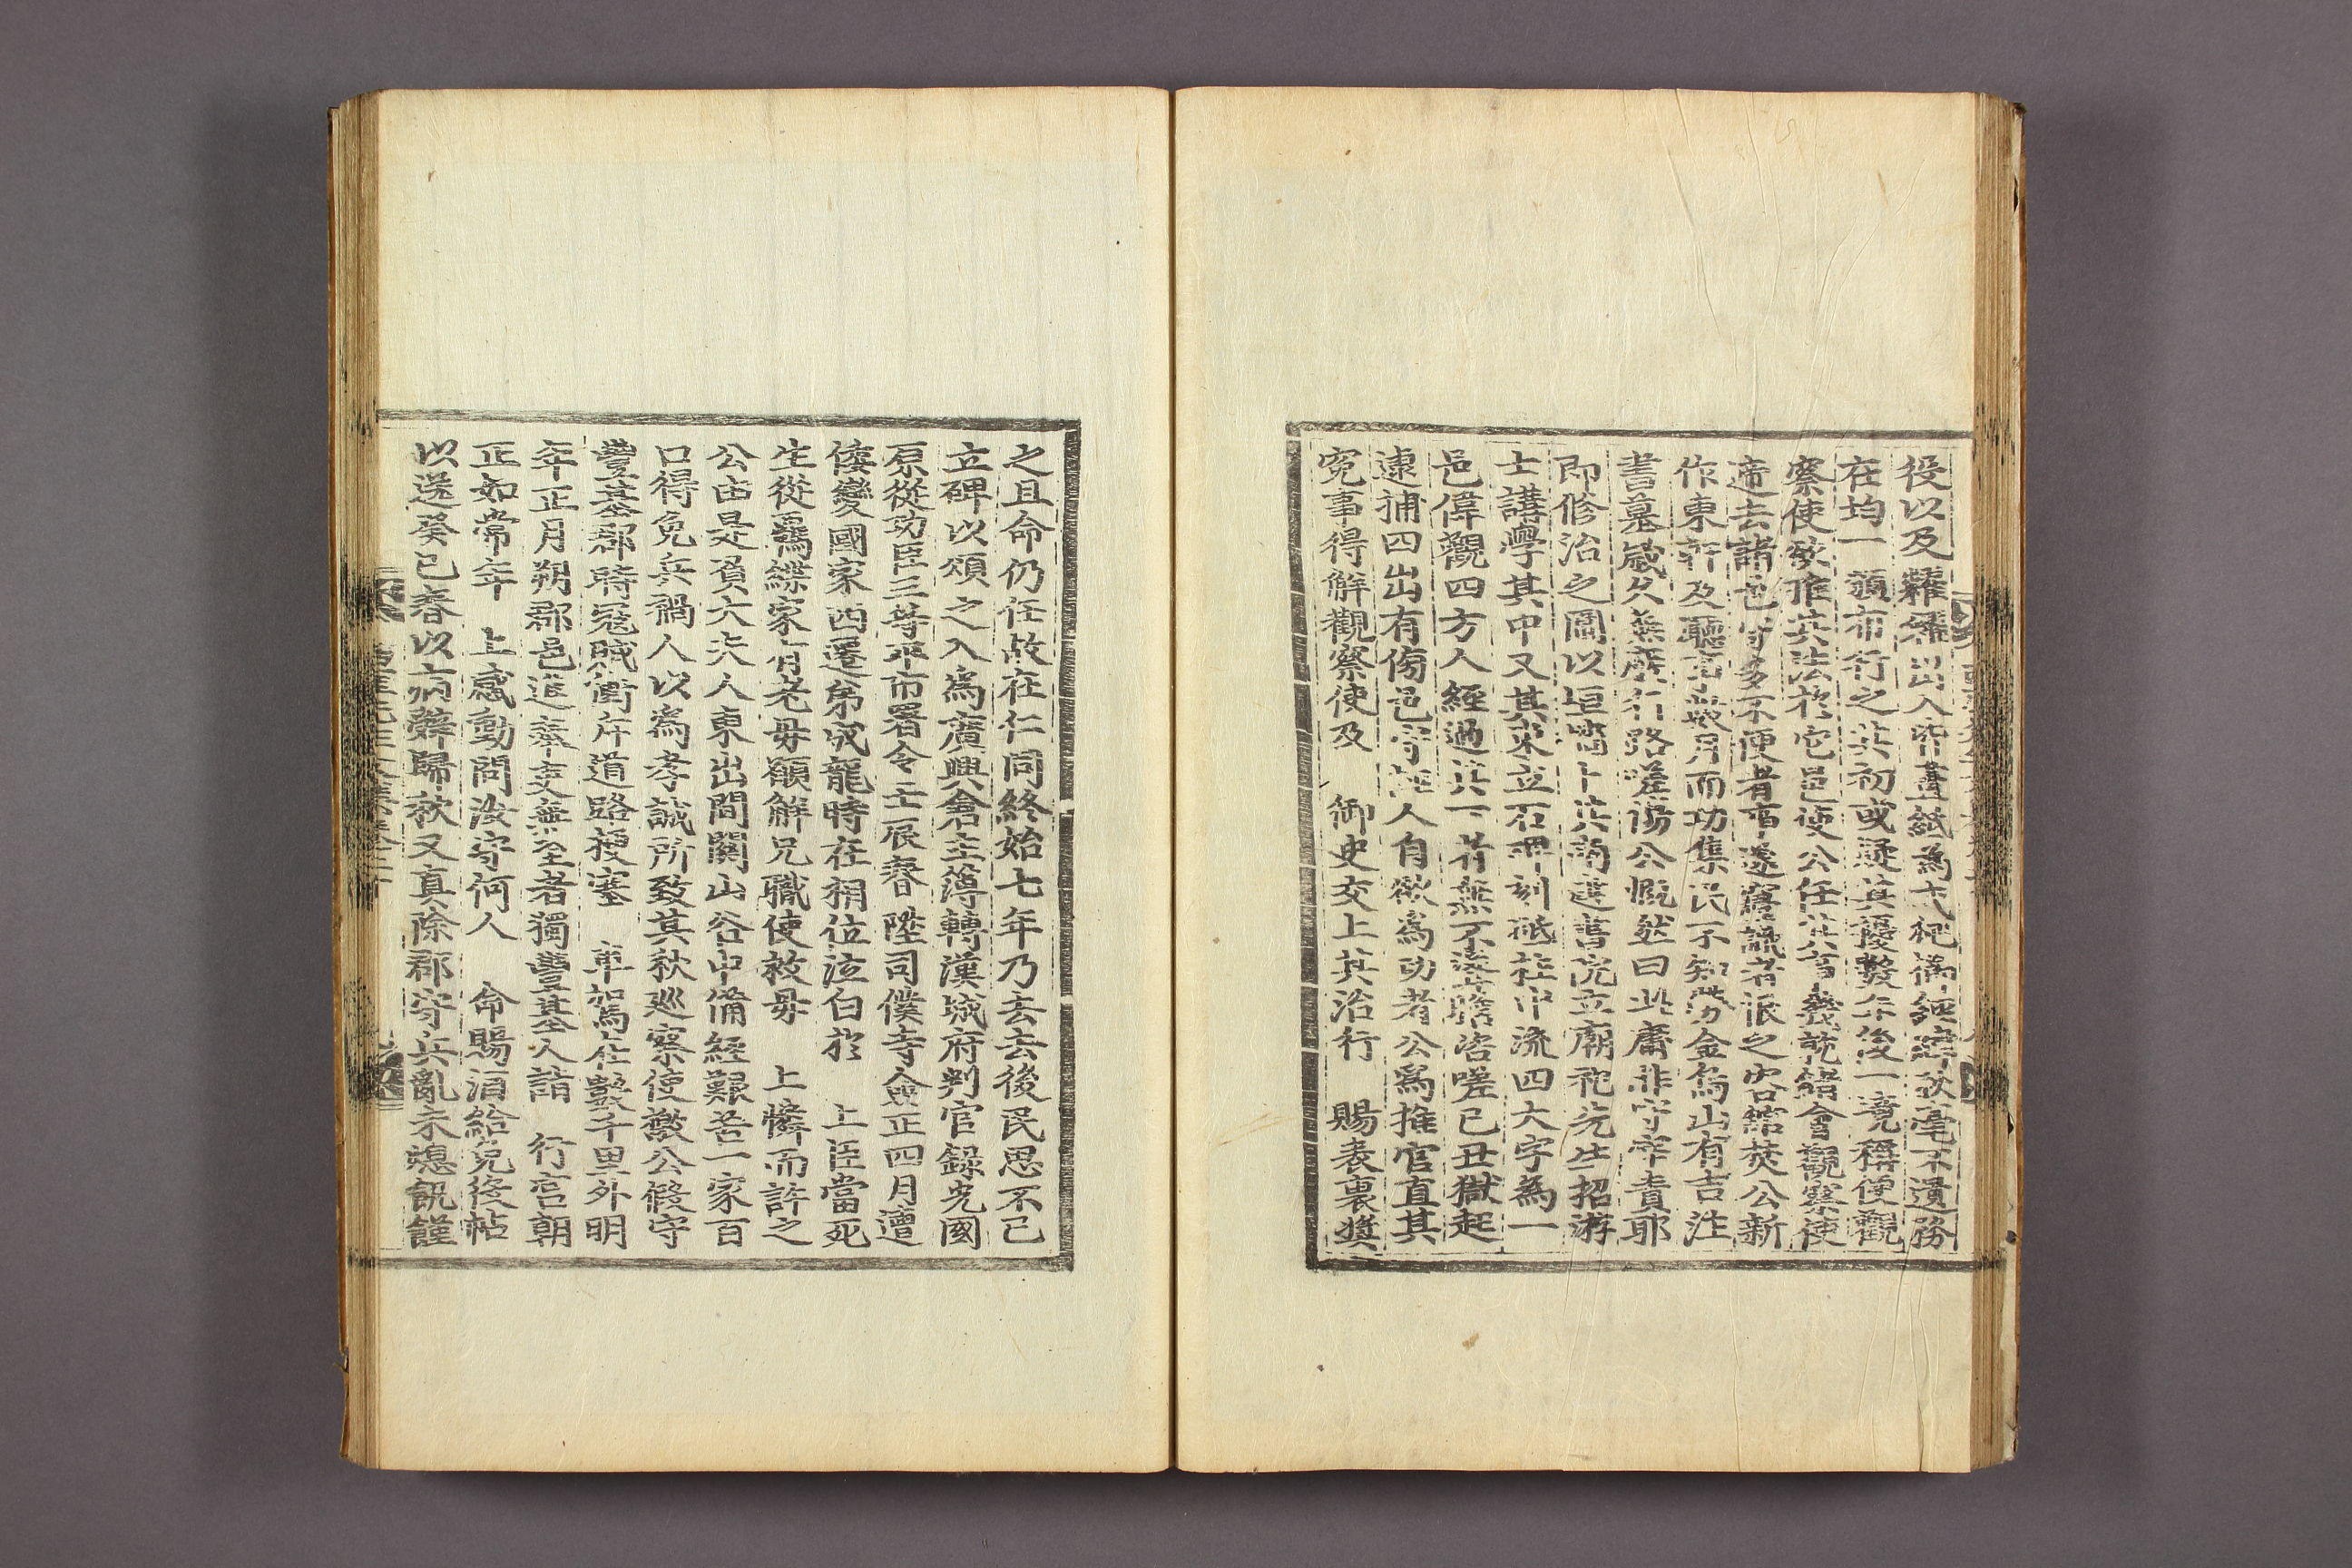 役以及糶糴出入皆畫紙爲式從橫經緯秋毫不遺務
在均一頒布行之其初或疑其擾數年後一境稱便觀
察使欲推其法於它邑使公任其首義訖緖會觀察使
遞去諸邑守多不便者事遂寢識者恨之客館焚公新
作東軒及聽事歲月而功集民不知勞金烏山有吉注
書墓歲久蕪廢行路嗟傷公慨然曰此庸非守宰責耶
即修治之圖以垣墻卜其南建書院立廟祀先生招游
士講學其中又其東立石碑刻砥柱中流四大字爲一
邑偉觀四方人經過其下者無不瞻咨嗟己丑獄起
逮捕四出有傍邑守誣人自欲爲功者公爲推官直其
寃事得解觀察使及 御史交上其治行 賜表裏奬
之且命仍任故在仁同終始七年乃去去後民思不已
立碑以頌之入爲廣興倉主簿轉漢城府判官錄光國
原從功臣三等平市署令壬辰春陞司僕寺僉正四月遭
倭變國家西遷弟成龍時在相位泣白於 上臣當死
生從羈絏家有老毋願解兄職使救毋 上憐而許之
公由是負大夫人東出間關山谷中備經艱苦一家百
口得免兵禍人以爲孝誠所致其秋巡察使檄公假守
豐基郡時寇賊充斥道路梗塞 車駕在數千里外明
年正月朔郡邑進奉吏無至者獨豐基人詣 行宮朝
正如常年 上感動問汝守何人 命賜酒給免役帖
以送癸巳春以病辭歸秋又真除郡守兵亂未熄飢饉